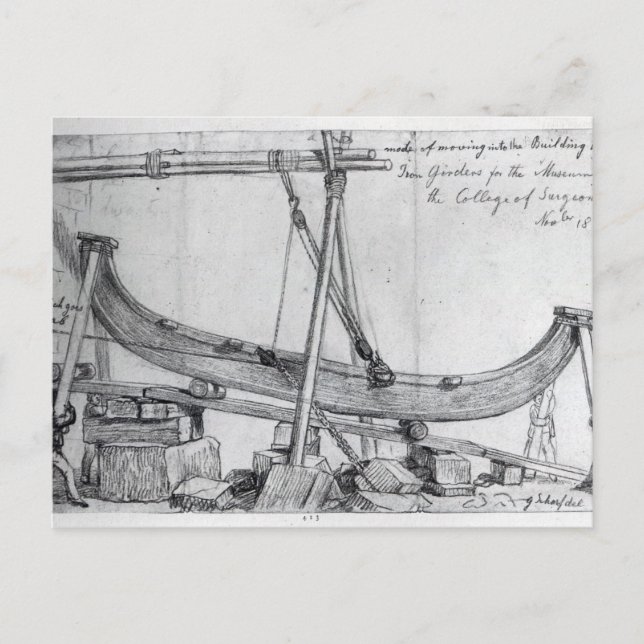 mode of moving into the Building
Iron Girders for the Museum
the College of Surgeon
Nov.er 18
ch goes
G Scharf del
613